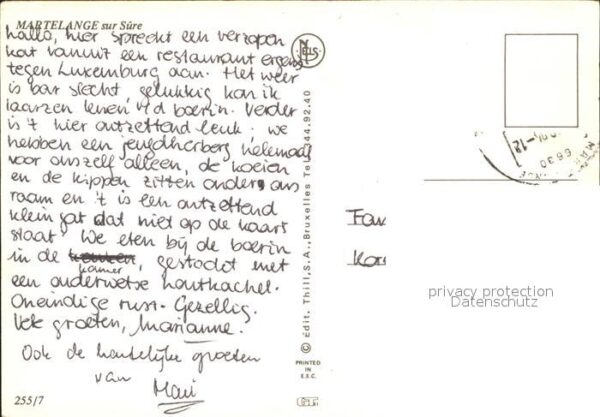 MARTELANGE sur Sûre
Hallo, hier spreekt een verzopen
kat vanuit een restaurant ergens
tegen Luxemburg aan. Het weer
is bar slecht, gelukkig kan ik
laarzen lenen v/d boerin. Verder
is 't hier ontzettend leuk: we
hebben een jeugdherberg helemaal
voor onszelf alleen, de koeien
en de kippen zitten onder ons
raam en 't is een ontzettend
klein gat dat niet op de kaart
staat. We eten bij de boerin
in de kamer, gestookt met
een ouderwetse houtkachel.
Oneindige rust. Gezellig.
Vele groeten, Marianne.
Ook de hartelijke groeten
van
255/7
ELS
© Édit. Thill, S.A., Bruxelles Tel. 44.92.40
PRINTED
IN
E.E.C.
6630
-12
Fam
privacy protection
Datenschutz